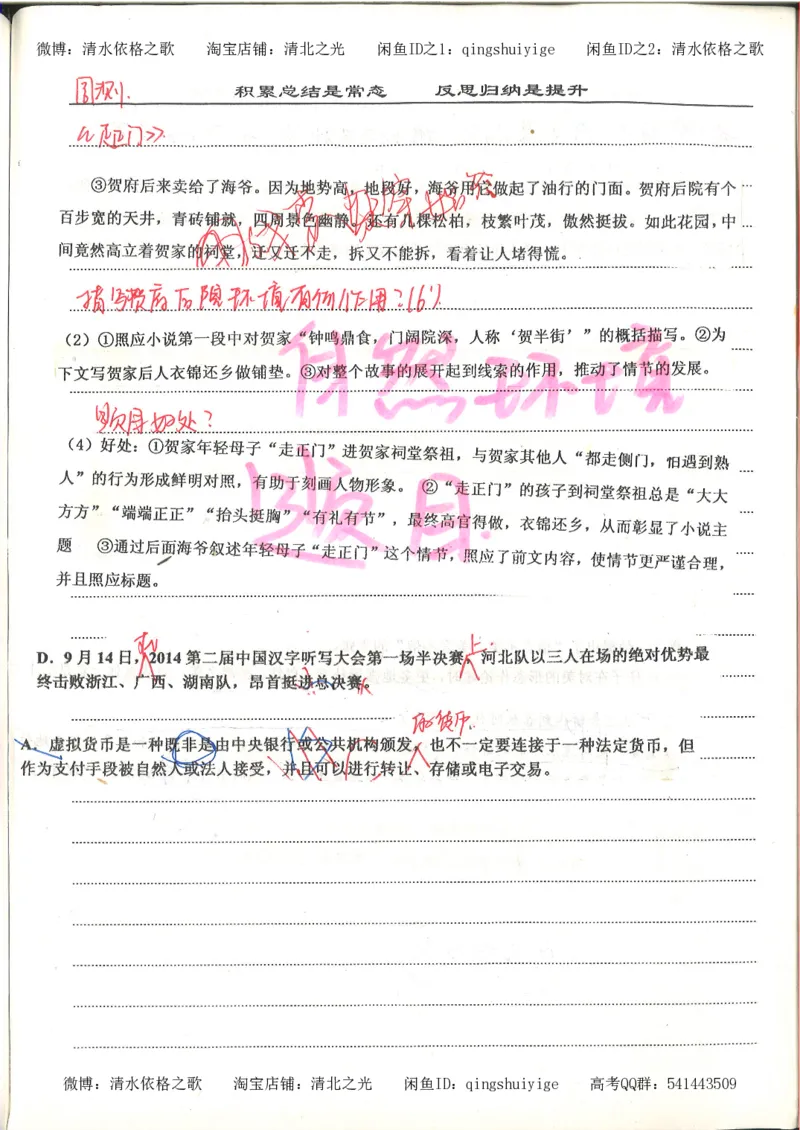 微博：清水依格之歌 淘宝店铺：清北之光 闲鱼ID之1：qingshuiyige 闲鱼ID之2：清水依格之歌
周测1.
积累总结是常态 反思归纳是提升
《走正门》
③贺府后来卖给了海爷。因为地势高，地段好，海爷用它做起了油行的门面。贺府后院有个
百步宽的天井，青砖铺就，四周景色幽静。还有几棵松柏，枝繁叶茂，傲然挺拔。如此花园，中
间竟然高立着贺家的祠堂，迁又迁不走，拆又不能拆，看着让人堵得慌。
描写贺府后院环境有何作用？(6')
（2）①照应小说第一段中对贺家“钟鸣鼎食，门阔院深，人称‘贺半街’”的概括描写。②为
下文写贺家后人衣锦还乡做铺垫。③对整个故事的展开起到线索的作用，推动了情节的发展。
自然环境
题目好处？
（4）好处：①贺家年轻母子“走正门”进贺家祠堂祭祖，与贺家其他人“都走侧门，怕遇到熟
人”的行为形成鲜明对照，有助于刻画人物形象。 ②“走正门”的孩子到祠堂祭祖总是“大大
方方”“端端正正”“抬头挺胸”“有礼有节”，最终高官得做，衣锦还乡，从而彰显了小说主
题 ③通过后面海爷叙述年轻母子“走正门”这个情节，照应了前文内容，使情节更严谨合理，
并且照应标题。
题目
在
上
D．9月14日，2014第二届中国汉字听写大会第一场半决赛，河北队以三人在场的绝对优势最
终击败浙江、广西、湖南队，昂首挺进总决赛。
A．虚拟货币是一种既非是由中央银行或公共机构颁发，也不一定要连接于一种法定货币，但
作为支付手段被自然人或法人接受，并且可以进行转让、存储或电子交易。
微博：清水依格之歌 淘宝店铺：清北之光 闲鱼ID：qingshuiyige 高考QQ群：541443509